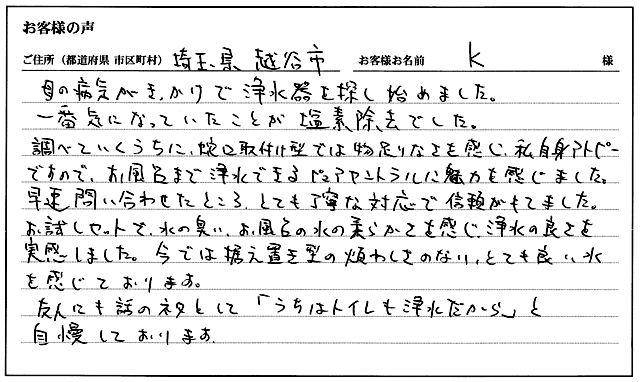 お客様の声
ご住所（都道府県 市区町村） 埼玉県 越谷市 お客様お名前 K 様
母の病気がきっかけで浄水器を探し始めました。
一番気になっていたことが塩素除去でした。
調べていくうちに、蛇口取付け型では物足りなさを感じ、私自身アトピー
ですので、お風呂まで浄水できるピュアセントラルに魅力を感じました。
早速問い合わせたところ、とても丁寧な対応で信頼がもてました。
お試しセットで、水の臭い、お風呂の水の柔らかさを感じ、浄水の良さを
実感しました。今では据え置き型の煩わしさのない、とても良い水
を感じております。
友人にも話のネタとして「うちはトイレも浄水だから」と
自慢しております。